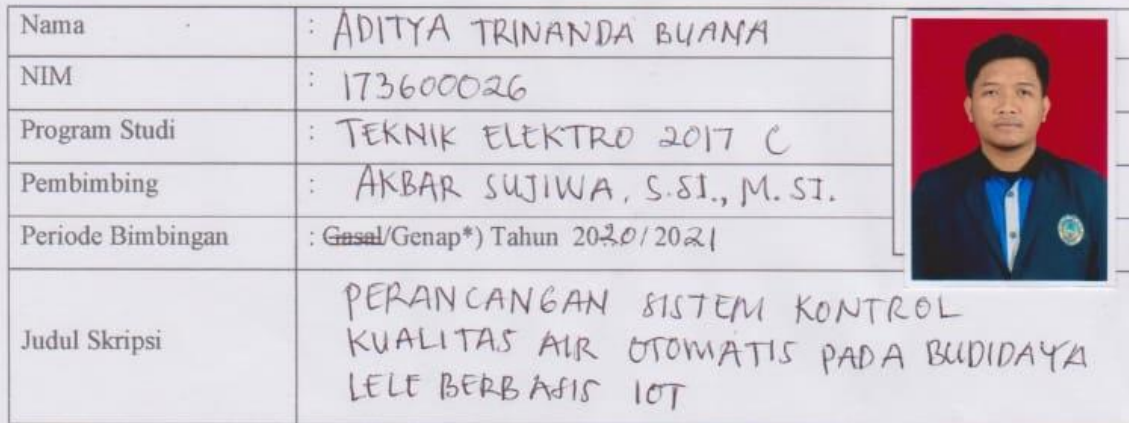 Nama : ADITYA TRINANDA BUANA
NIM : 173600026
Program Studi : TEKNIK ELEKTRO 2017 C
Pembimbing : AKBAR SUJIWA, S.SI., M.SI.
Periode Bimbingan : Gasal/Genap*) Tahun 2020/2021
Judul Skripsi
PERANCANGAN SISTEM KONTROL
KUALITAS AIR OTOMATIS PADA BUDIDAYA
LELE BERBASIS IOT